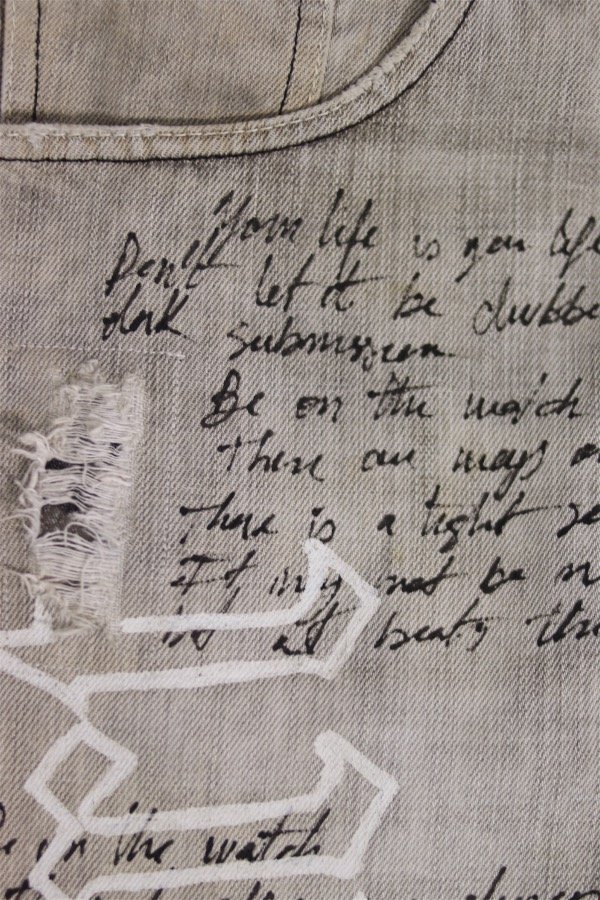 Your life is your life
Don't let it be clubbe
dark submission.
Be on the watch
There are ways o
There is a light so
It may not be m
but it beats the
Be on the watch